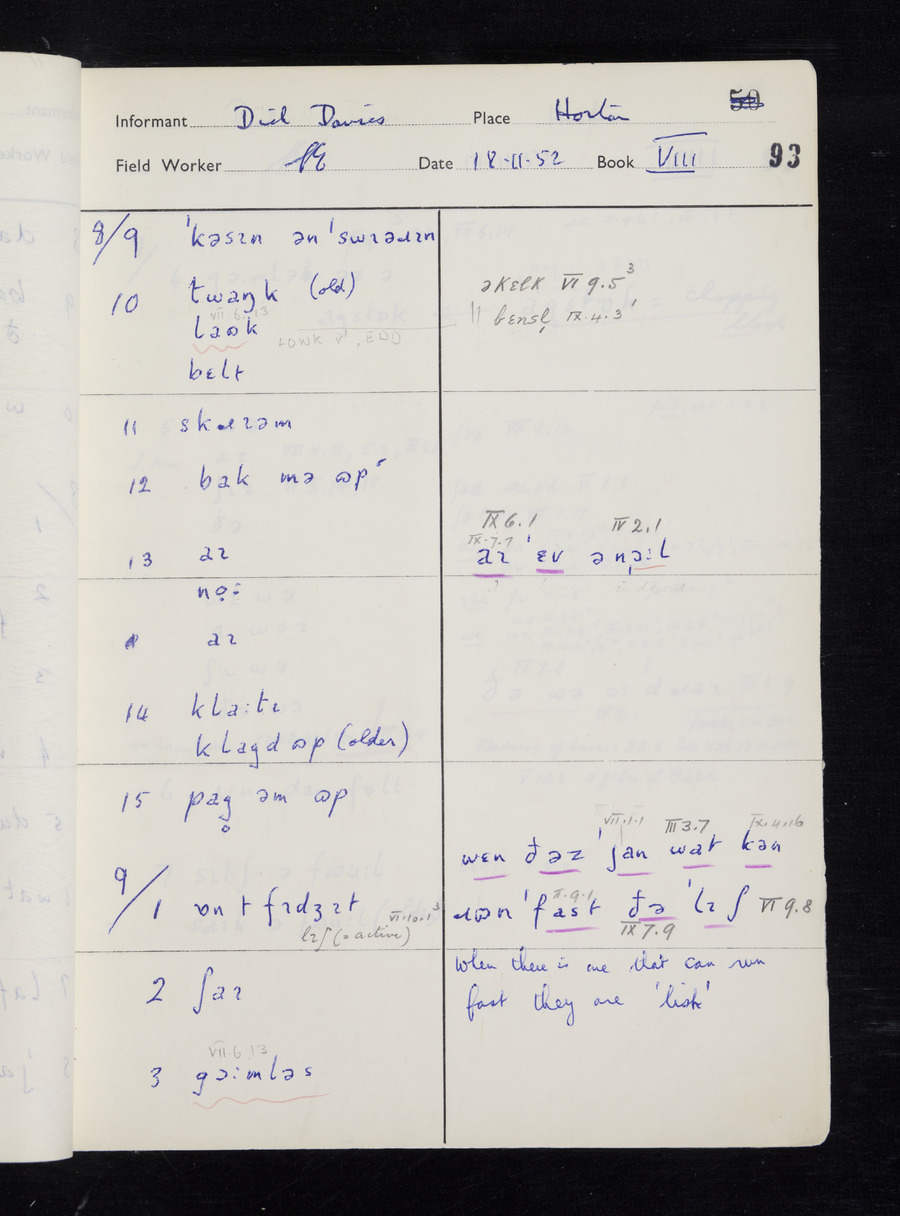 50
Informant Dick Davies Place Horton
Field Worker Date 18-11-52 Book VIII 93
8/9 ˈkəsɪn ən ˈswɪəɹɪn
10 twaŋk (old)
VII.6.13
laʊk
LOWK v', EDD
bɛlt
əkɛlk VI 9.5³
|| bɛnsl̩ IX.4.3¹
11 skɹɪəm
12 bak mə ʊp
13 aɪ
IX 6.1 IV 2.1
IX.7.7
aɪ ˈɛv ə nɔ̣ːl
nọː
aɪ
14 klaːtɪ
klagd ʊp (older)
15 pag̥ əm ʊp
VII.1.1 III 3.7 IX.4.16
wɛn ðəz ˈjan wat kən
9/1 ɒnt fɪdʒɪt VI.10.1³
lɪʃ (= active)
II.9.1
ɹʊn ˈfast ðə ˈlɪʃ VI 9.8
IX 7.9
when there is one that can run
fast they are 'lish'
2 ʃaɪ
VII.6.13
3 gɔːmləs